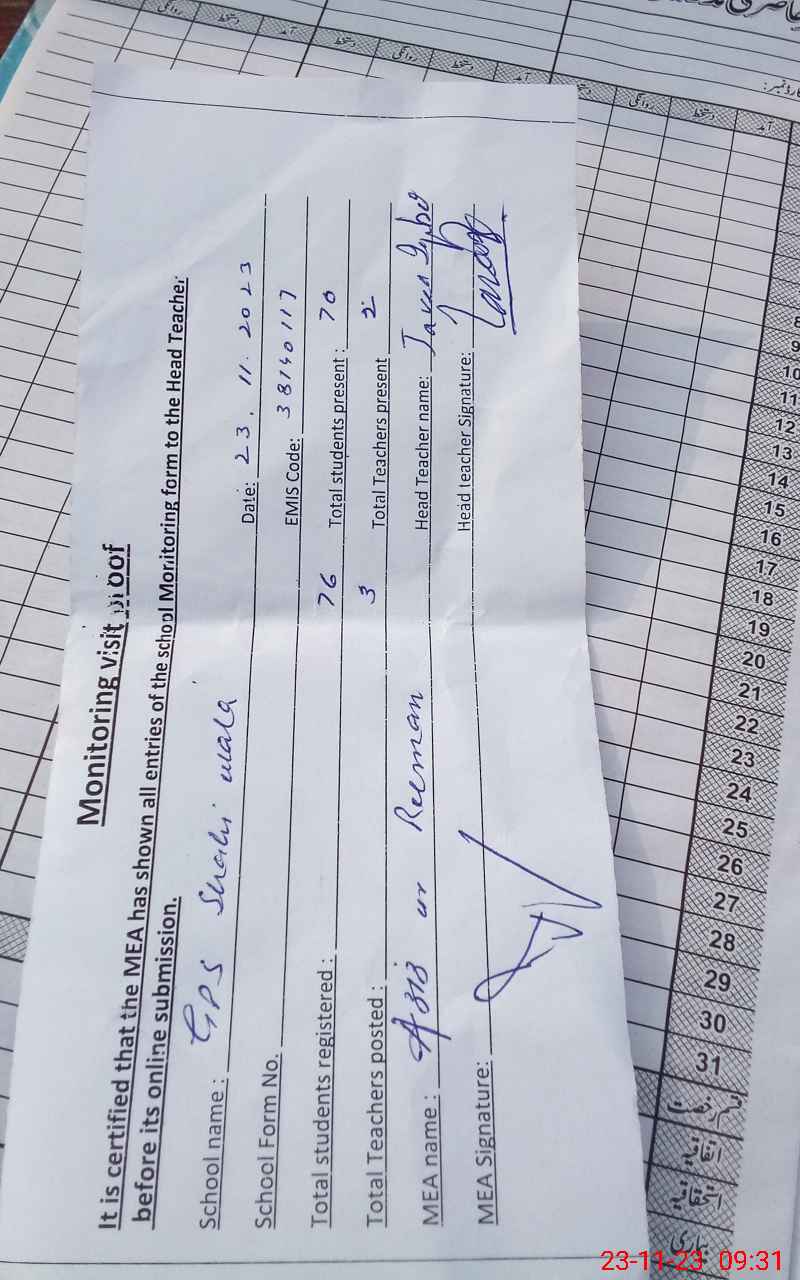 Monitoring visit proof
It is certified that the MEA has shown all entries of the school Monitoring form to the Head Teacher
before its online submission.
School name : GPS Shahi wala Date: 23. 11. 2023
School Form No. EMIS Code: 38140117
Total students registered : 76 Total students present : 70
Total Teachers posted : 3 Total Teachers present 2
MEA name : Aziz ur Reeman Head Teacher name: Javed Iqbal
MEA Signature: Head teacher Signature:
آمد دستخط روانگی دستخط آمد دستخط روانگی دستخط آمد
8
9
10
11
12
13
14
15
16
17
18
19
20
21
22
23
24
25
26
27
28
29
30
31
بیماری
23-11-23 09:31